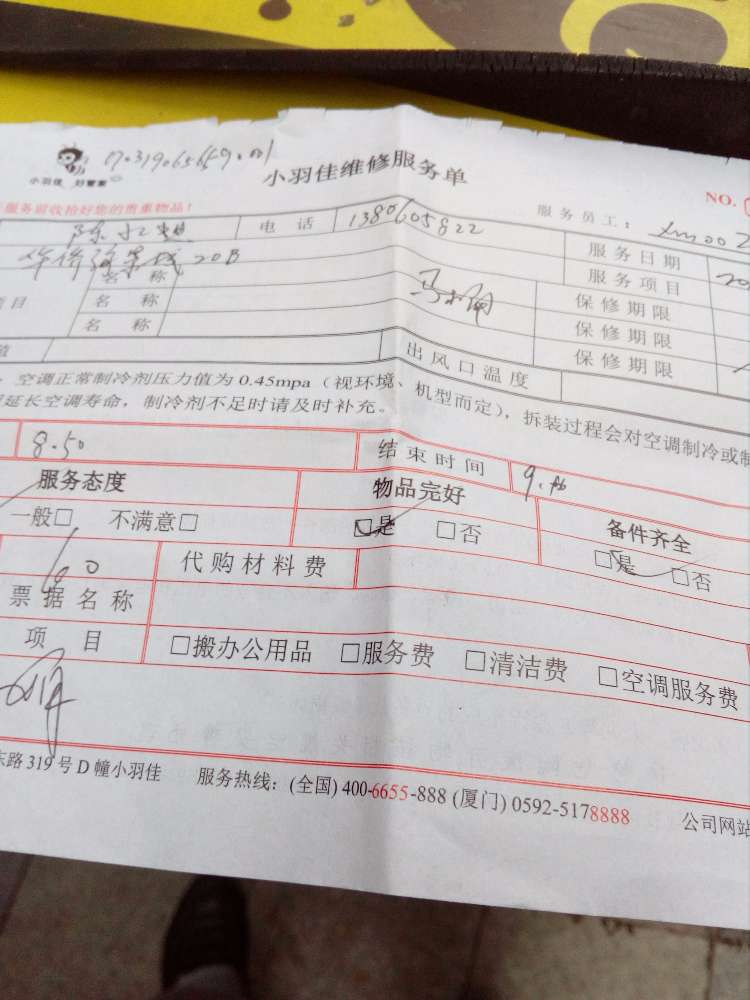 小羽佳 好管家 17031906565 9.001 小羽佳维修服务单 NO.
服务前收拾好您的贵重物品！ 服务员工：
电 话 1380605822 服务日期
20B 名 称 服务项目 20
项目 名 称 保修期限
名 称 保修期限
保修期限
值 出风口温度
空调正常制冷剂压力值为 0.45mpa（视环境、机型而定），拆装过程会对空调制冷或制
延长空调寿命，制冷剂不足时请及时补充。
8.50 结束时间
服务态度 物品完好 备件齐全
一般□ 不满意□ □是 □否 □是 □否
60 代购材料费
票据名称
项 目 □搬办公用品 □服务费 □清洁费 □空调服务费
东路 319 号 D 幢小羽佳 服务热线：(全国) 400-6655-888 (厦门) 0592-5178888 公司网站